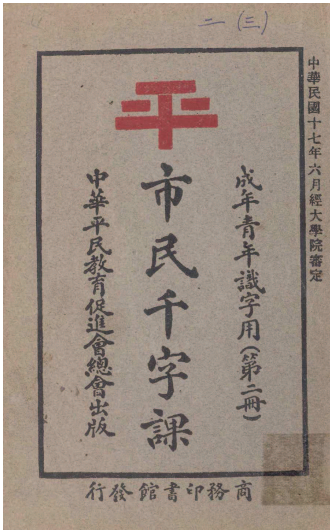 二 (三)
中華民國十七年六月經大學院審定
平
成年青年識字用(第二冊)
市民千字課
中華平民教育促進會總會出版
商務印書館發行